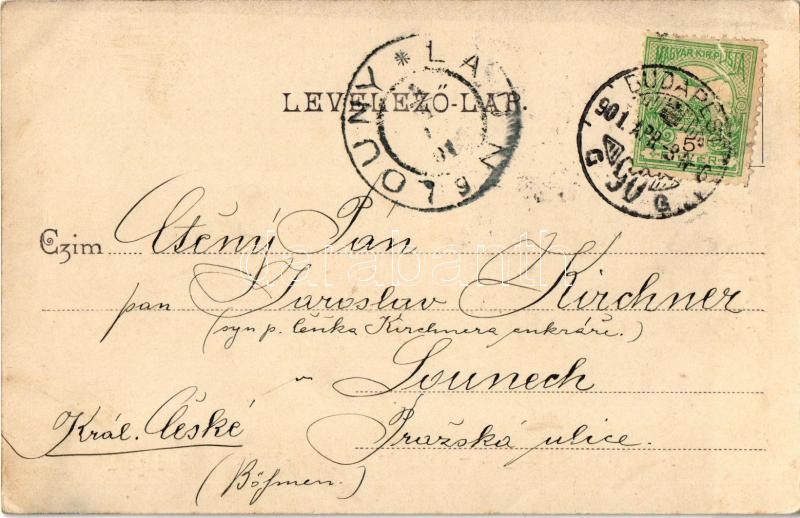 LEVELEZŐ-LAP.
LAUN LOUNY
MAGYAR KIR. POSTA
BUDAPEST
901 APR
5
Czim Ctěný Pán
pan Jaroslav Kirchner
(syn p. Čeňka Kirchnera cukráře.)
v Lounech
Král. České Pražská ulice.
(Böhmen.)
darabanth